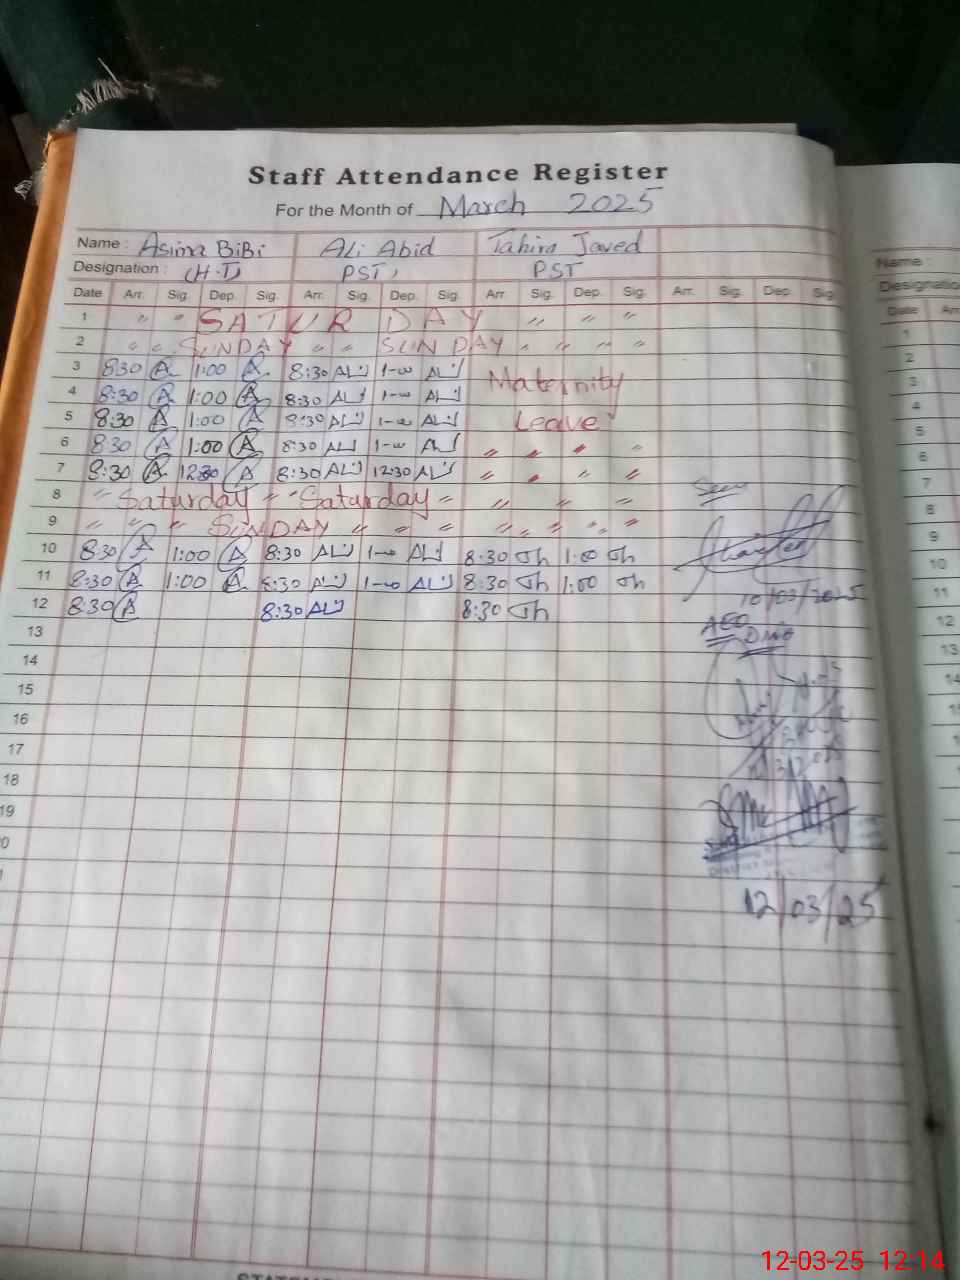 Staff Attendance Register
For the Month of March 2025
Name : Asima BiBi Ali Abid Tahira Javed
Designation : (H.T) PST, PST
Date Arr. Sig. Dep. Sig. Arr. Sig. Dep. Sig. Arr. Sig. Dep. Sig. Arr. Sig. Dep. Sig.
1 " " SATUR DAY " " "
2 " " SUNDAY " " SUNDAY " " " "
3 8:30 A 1:00 A 8:30 ALi 1-00 ALi Maternity
4 8:30 A 1:00 A 8:30 ALi 1-00 ALi
5 8:30 A 1:00 A 8:30 ALi 1-00 ALi Leave
6 8:30 A 1:00 A 8:30 ALi 1-00 ALi " " " "
7 8:30 A 12:30 A 8:30 ALi 12:30 ALi " " " "
8 " Saturday " " Saturday " " " "
9 " " " SUNDAY " " " " " " "
10 8:30 A 1:00 A 8:30 ALi 1-00 ALi 8:30 Jh 1:00 Jh
11 8:30 A 1:00 A 8:30 ALi 1-00 ALi 8:30 Jh 1:00 Jh
12 8:30 A 8:30 ALi 8:30 Jh
13
14
15
16
17
18
19
Seen
10/03/2025
AEO
12/03/25
Name :
Date Arr
1
2
3
4
5
6
7
8
9
10
11
12
13
14
12-03-25 12:14